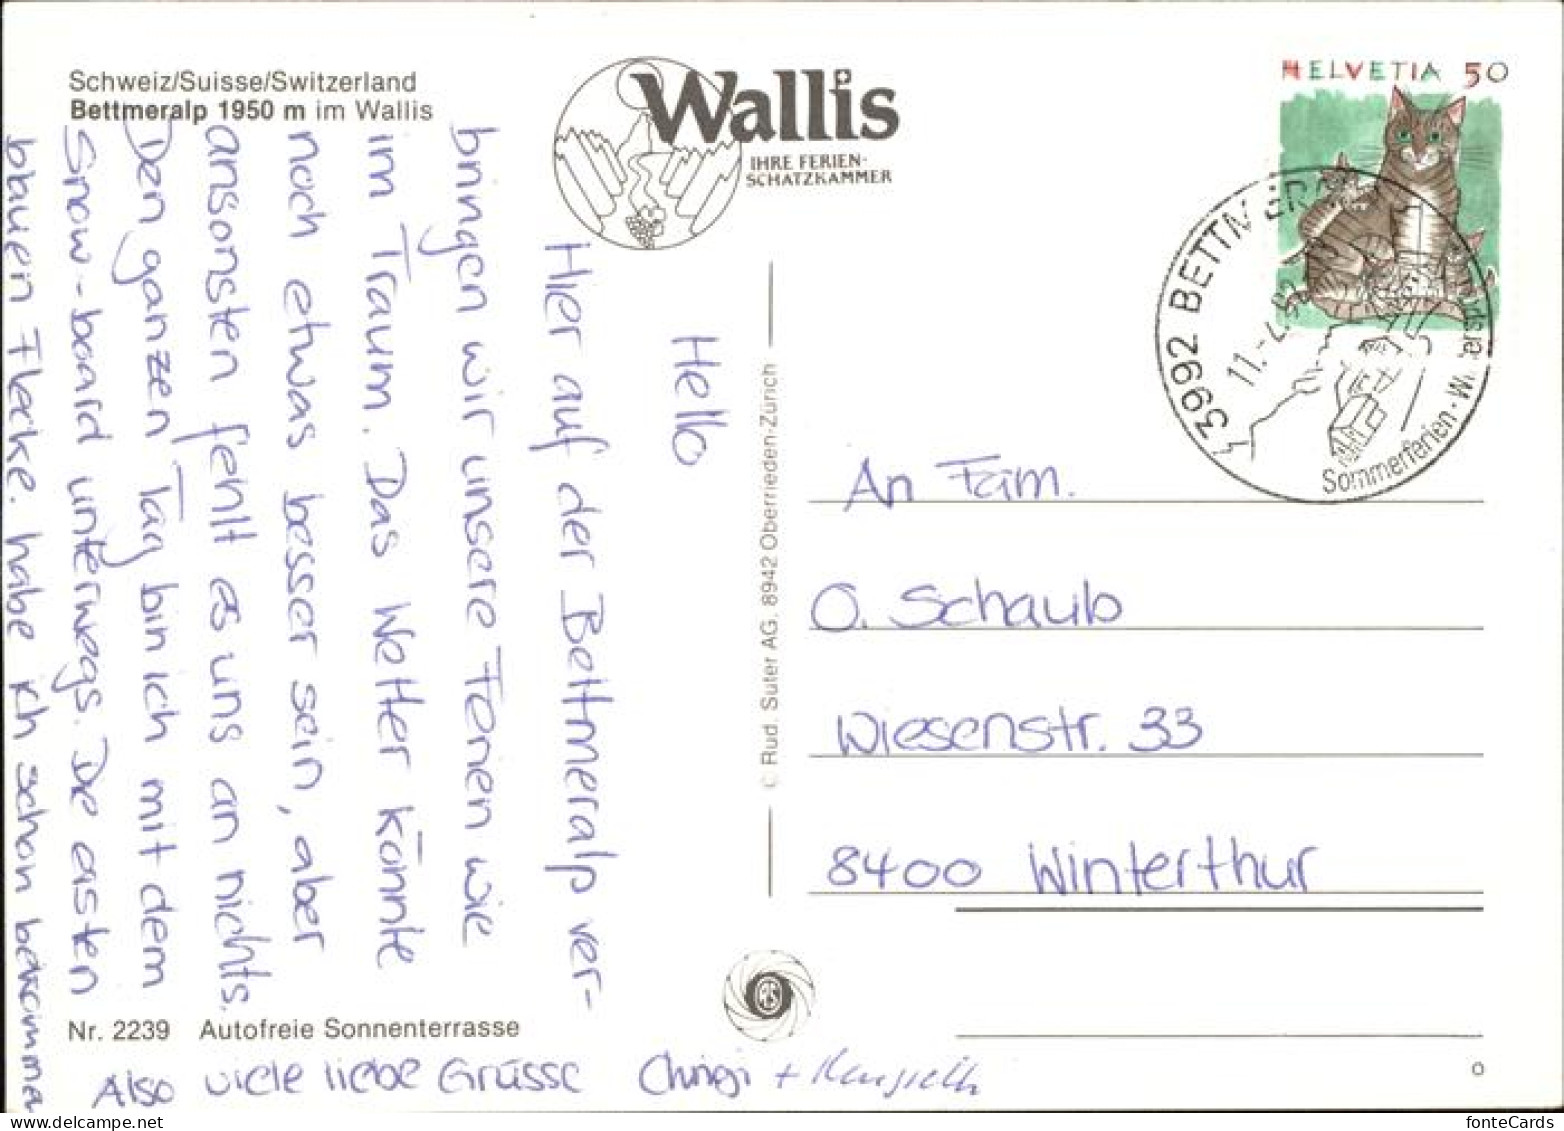 Schweiz/Suisse/Switzerland
Bettmeralp 1950 m im Wallis
Wallis
IHRE FERIEN-
SCHATZKAMMER
HELVETIA 50
3992 BETTMERALP
11.-
Sommerferien - Wi
Hello
Hier auf der Bettmeralp ver-
bringen wir unsere Ferien wie
im Traum. Das Wetter könnte
noch etwas besser sein, aber
ansonsten fehlt es uns an nichts.
Den ganzen Tag bin ich mit dem
Snow-board unterwegs. Die ersten
blauen Flecke. habe ich schon bekommen
Also viele liebe Grüsse Chingi +
An Fam.
O. Schaub
Wiesenstr. 33
8400 Winterthur
© Rud. Suter AG. 8942 Oberrieden-Zürich
Nr. 2239 Autofreie Sonnenterrasse
fonteCards